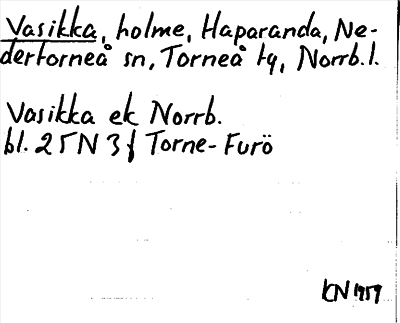 Vasikka, holme, Haparanda, Ne-
dertorneå sn, Torneå tg, Norrb.l.
Vasikka ek Norrb.
bl. 25 N 3 f Torne-Furö
KN 1959